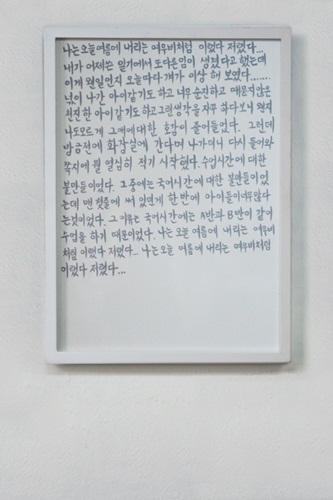 나는 오늘 여름에 내리는 여우비처럼 이랬다 저랬다...
내가 어제쓴 일기에서 또다른 맘이 생겼다고 했는데
이게 웬일인지 오늘따라 걔가 이상 해 보였다.......
넋이 나간 아이같기도 하고 너무 순진하고 때묻지않은
순진한 아이 같기도 하고 그런생각을 자꾸 하다보니 왠지
나도모르게 그애에대한 호감이 줄어들었다. 그런데
방금전에 화장실에 간다며 나가더니 다시 들어와
쪽지에 뭘 열심히 적기 시작했다. 수업시간에 대한
불만들이었다. 그중에는 국어시간에 대한 불만들이었
는데 맨 윗줄에 써 있던게 한 반에 아이들이너무많다
는것이었다. 그 이유는 국어시간에는 A반과 B반이 같이
수업을 하기 때문이었다. 나는 오늘 여름에 내리는 여우비
처럼 이랬다 저랬다... 나는 오늘 여름에 내리는 여우비처럼
이랬다 저랬다...